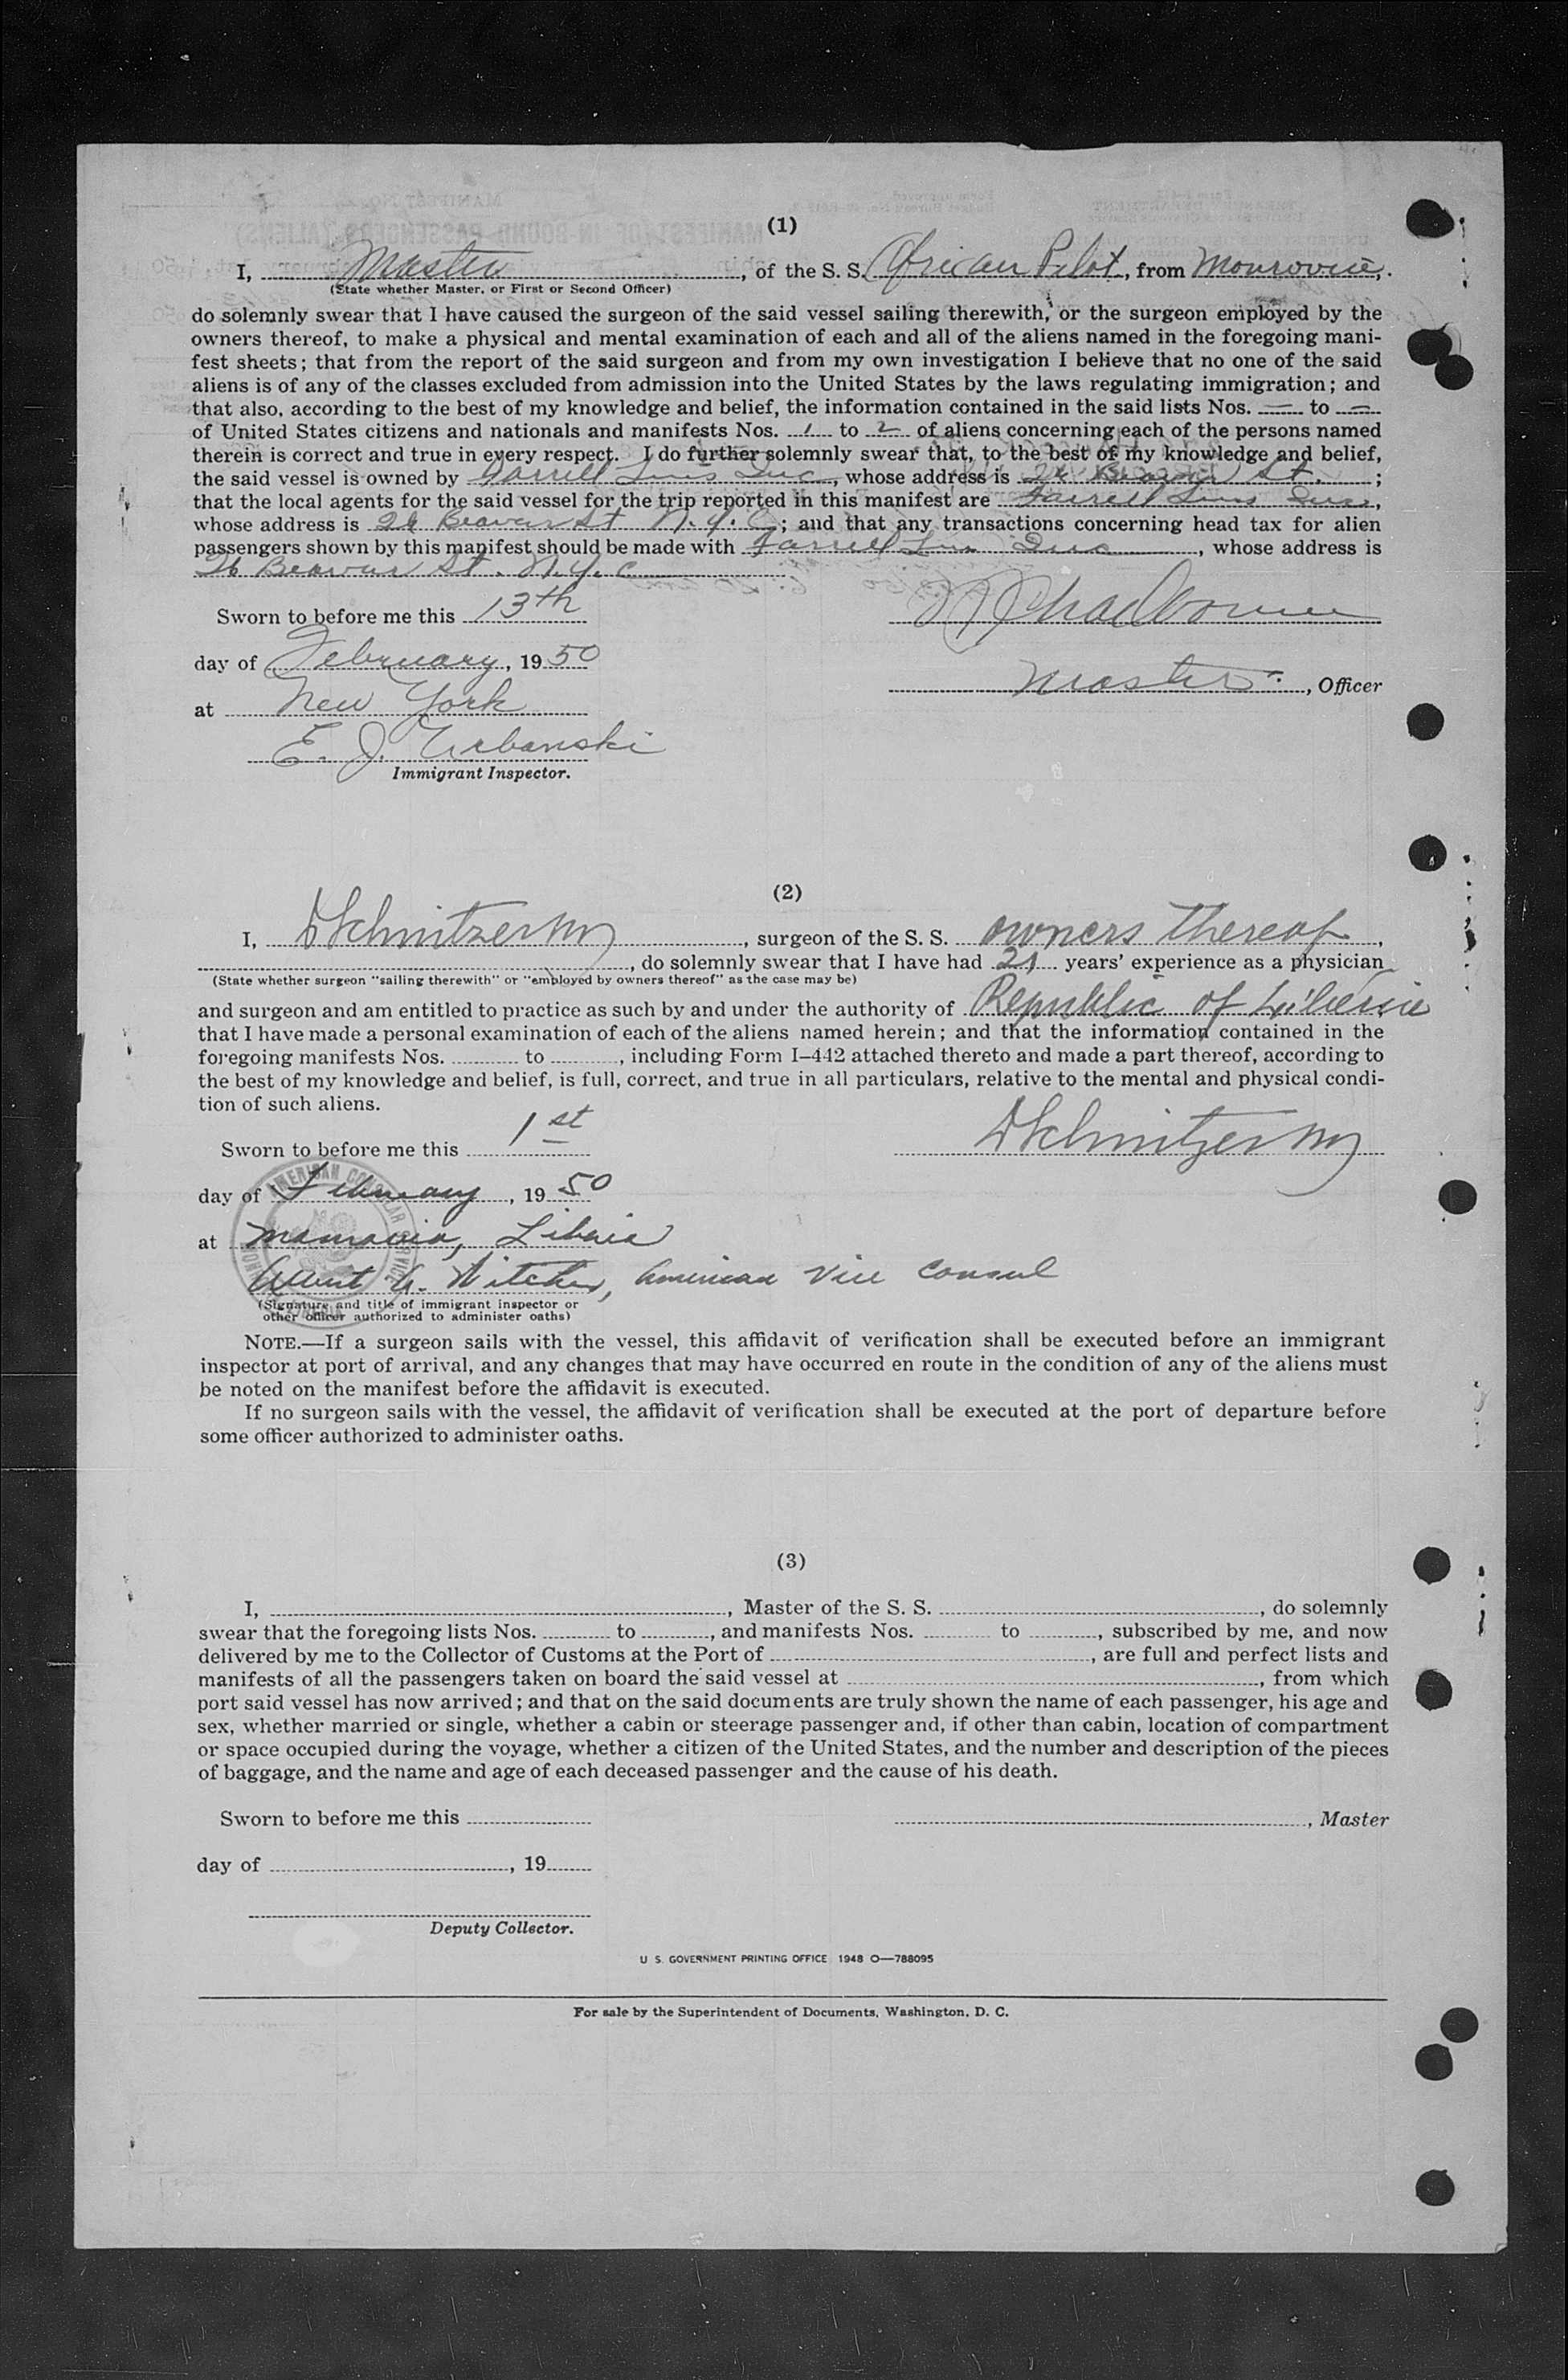 (1)
I, Master, of the S. S. African Pilot, from Monrovia,
(State whether Master, or First or Second Officer)
do solemnly swear that I have caused the surgeon of the said vessel sailing therewith, or the surgeon employed by the
owners thereof, to make a physical and mental examination of each and all of the aliens named in the foregoing mani-
fest sheets; that from the report of the said surgeon and from my own investigation I believe that no one of the said
aliens is of any of the classes excluded from admission into the United States by the laws regulating immigration; and
that also, according to the best of my knowledge and belief, the information contained in the said lists Nos. — to —
of United States citizens and nationals and manifests Nos. 1 to 2 of aliens concerning each of the persons named
therein is correct and true in every respect. I do further solemnly swear that, to the best of my knowledge and belief,
the said vessel is owned by Farrell Lines Inc, whose address is 26 Beaver St. ;
that the local agents for the said vessel for the trip reported in this manifest are Farrell Lines Inc,
whose address is 26 Beaver St N.Y.C; and that any transactions concerning head tax for alien
passengers shown by this manifest should be made with Farrell Lines Inc, whose address is
26 Beaver St. N.Y.C
Sworn to before me this 13th
day of February, 1950
Master, Officer
at New York
E. J. Urbanski
Immigrant Inspector.
(2)
I, D Schnitzer MD, surgeon of the S. S. owners thereof,
, do solemnly swear that I have had 21 years' experience as a physician
(State whether surgeon "sailing therewith" or "employed by owners thereof" as the case may be)
and surgeon and am entitled to practice as such by and under the authority of Republic of Liberia
that I have made a personal examination of each of the aliens named herein; and that the information contained in the
foregoing manifests Nos. to , including Form I-442 attached thereto and made a part thereof, according to
the best of my knowledge and belief, is full, correct, and true in all particulars, relative to the mental and physical condi-
tion of such aliens.
Sworn to before me this 1st
D Schnitzer MD
day of February, 1950
at Monrovia, Liberia
American Vice Consul
(Signature and title of immigrant inspector or
other officer authorized to administer oaths)
AMERICAN CONSULAR SERVICE
NOTE.—If a surgeon sails with the vessel, this affidavit of verification shall be executed before an immigrant
inspector at port of arrival, and any changes that may have occurred en route in the condition of any of the aliens must
be noted on the manifest before the affidavit is executed.
If no surgeon sails with the vessel, the affidavit of verification shall be executed at the port of departure before
some officer authorized to administer oaths.
(3)
I, , Master of the S. S. , do solemnly
swear that the foregoing lists Nos. to , and manifests Nos. to , subscribed by me, and now
delivered by me to the Collector of Customs at the Port of , are full and perfect lists and
manifests of all the passengers taken on board the said vessel at , from which
port said vessel has now arrived; and that on the said documents are truly shown the name of each passenger, his age and
sex, whether married or single, whether a cabin or steerage passenger and, if other than cabin, location of compartment
or space occupied during the voyage, whether a citizen of the United States, and the number and description of the pieces
of baggage, and the name and age of each deceased passenger and the cause of his death.
Sworn to before me this
, Master
day of , 19
Deputy Collector.
U S. GOVERNMENT PRINTING OFFICE 1948 O—788095
For sale by the Superintendent of Documents, Washington, D. C.